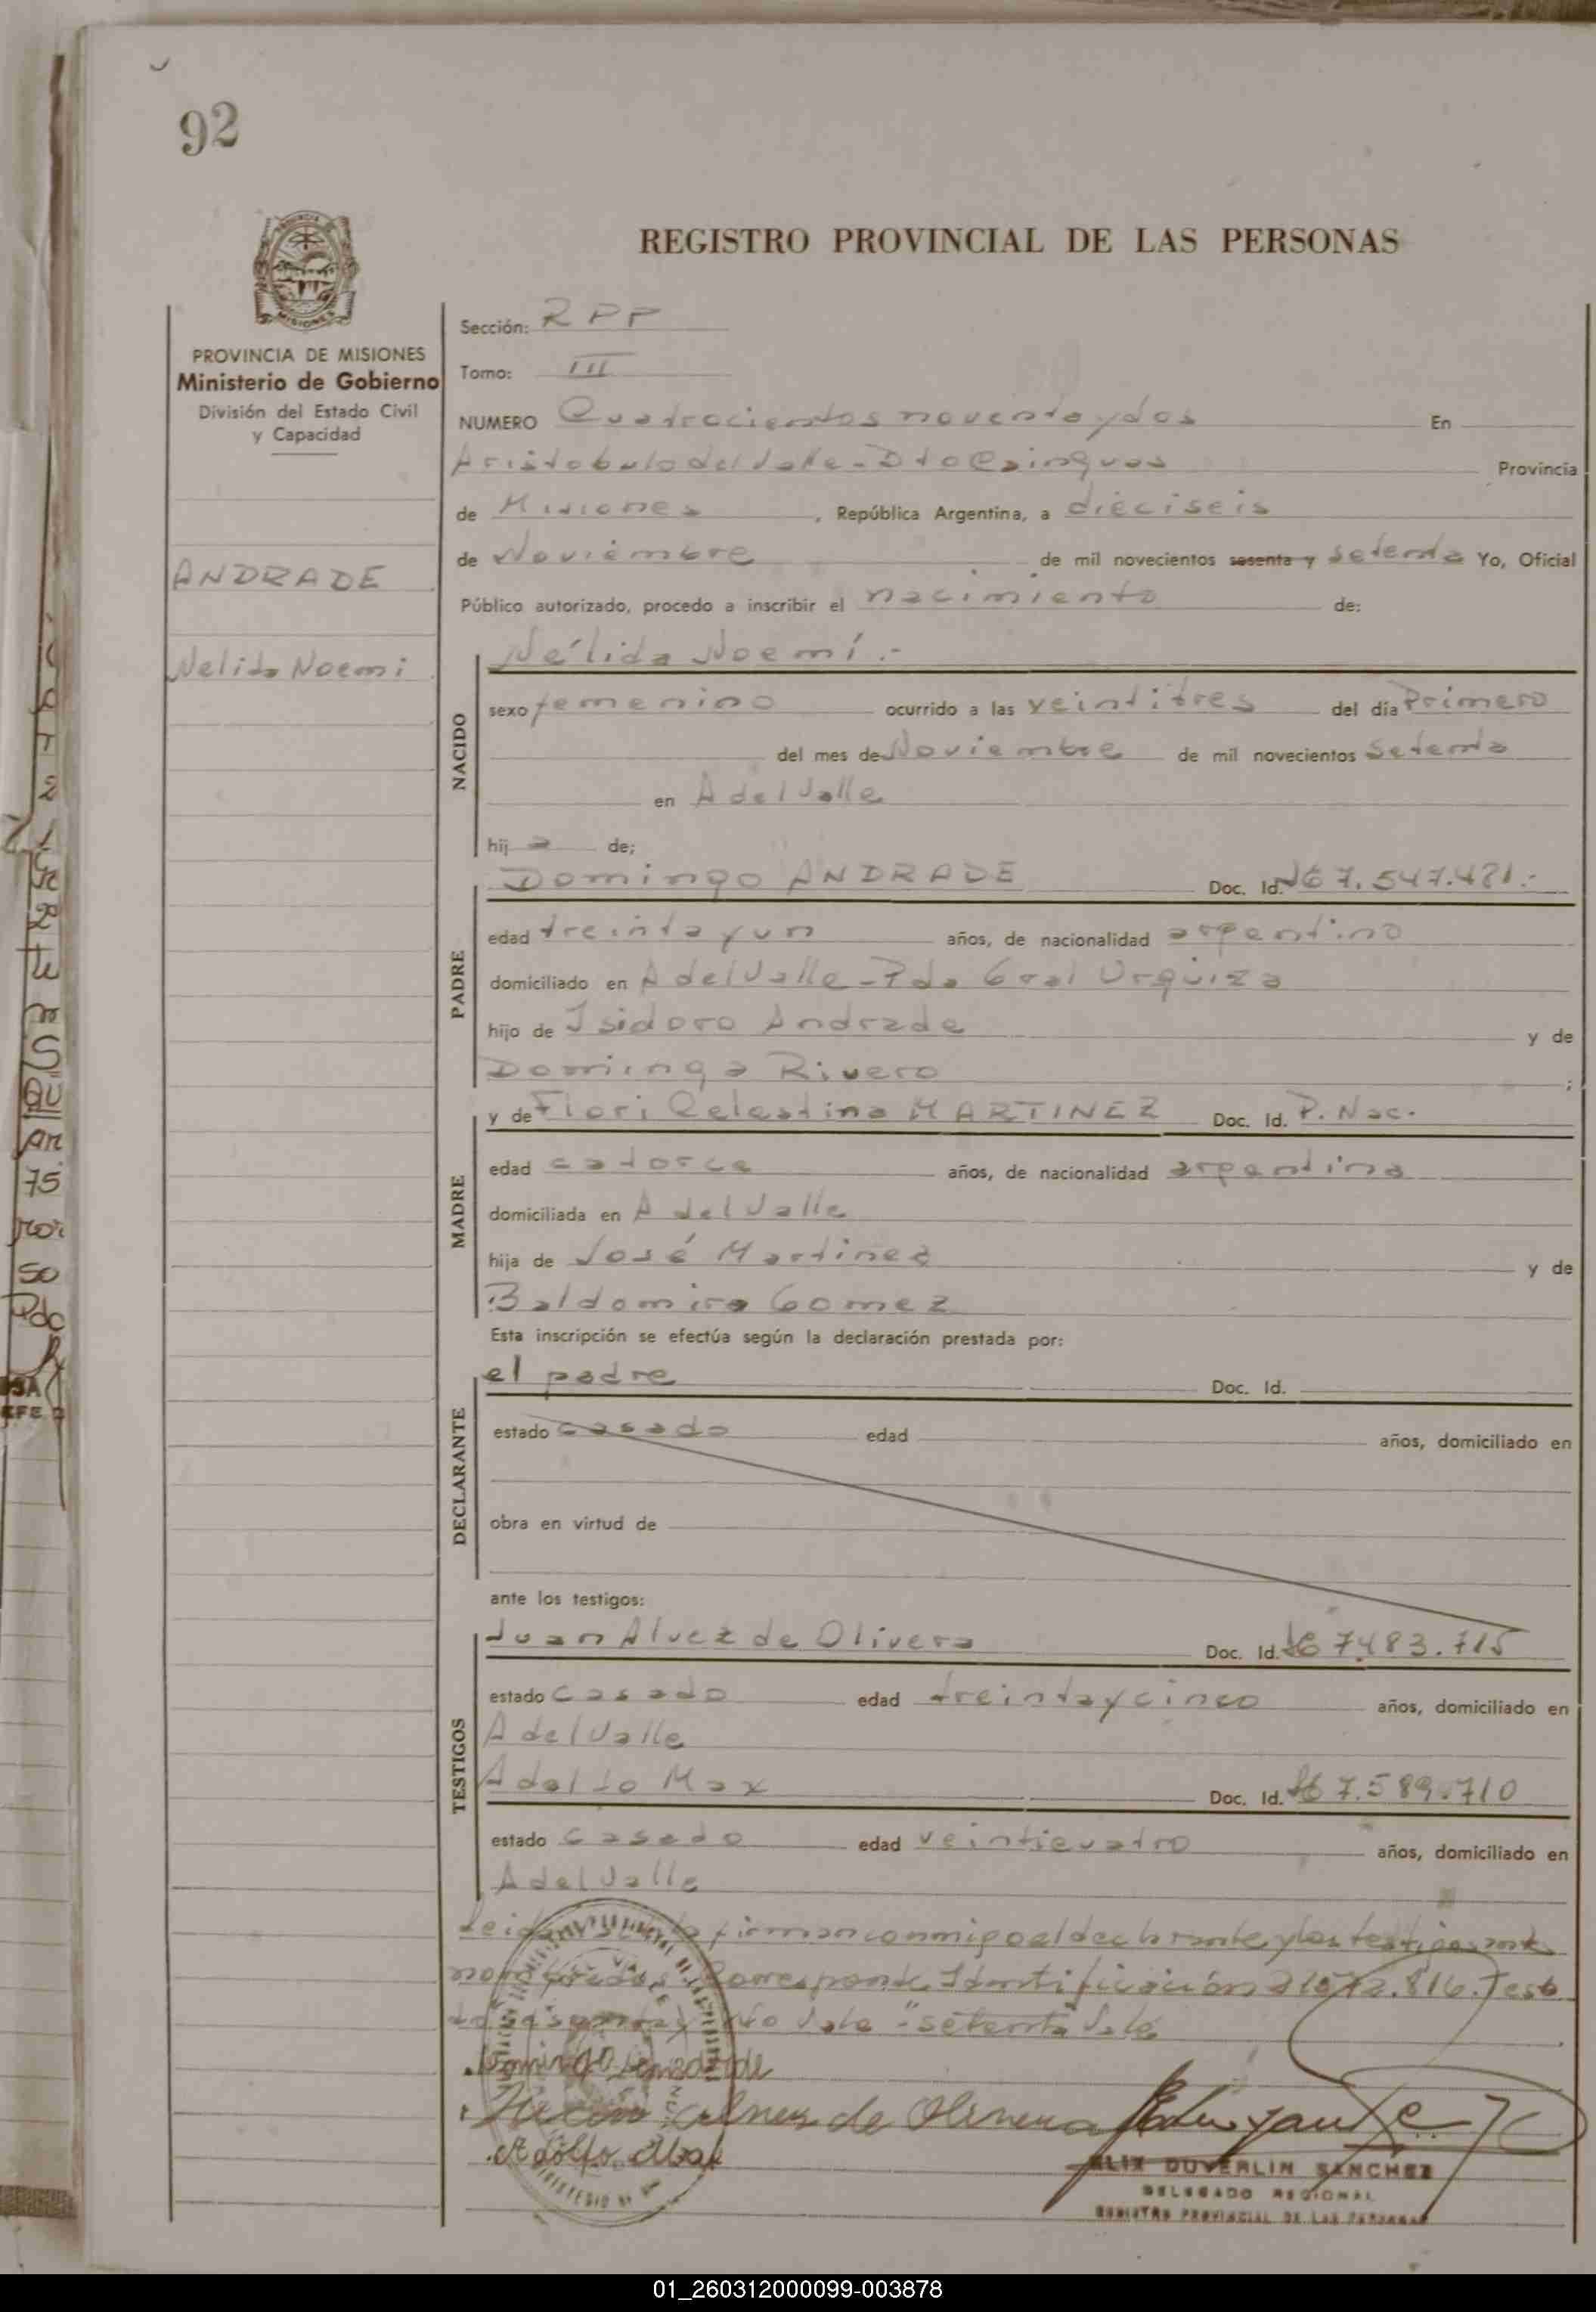 92
REGISTRO PROVINCIAL DE LAS PERSONAS
PROVINCIA DE MISIONES
Ministerio de Gobierno
División del Estado Civil
y Capacidad
ANDRADE
Nelida Noemi
Sección: RPP
Tomo: III
NUMERO Cuatrocientos noventa y dos En
Aristobulo del Valle - Dto Cainguas Provincia
de Misiones, República Argentina, a dieciseis
de Noviembre de mil novecientos sesenta y setenta Yo, Oficial
Público autorizado, procedo a inscribir el nacimiento de:
NACIDO
Nélida Noemí.-
sexo femenino ocurrido a las veintitres del día Primero
del mes de Noviembre de mil novecientos setenta
en A del Valle
hij a de;
PADRE
Domingo ANDRADE Doc. Id. Nº 7.547.481.-
edad treinta y un años, de nacionalidad argentino
domiciliado en A del Valle - Pda Gral Urquiza
hijo de Isidoro Andrade y de
Dominga Rivero ;
MADRE
y de Flori Celestina MARTINEZ Doc. Id. P. Nac.
edad catorce años, de nacionalidad argentina
domiciliada en A del Valle
hija de José Martinez y de
Baldomira Gomez
Esta inscripción se efectúa según la declaración prestada por:
DECLARANTE
el padre Doc. Id.
estado casado edad años, domiciliado en
obra en virtud de
ante los testigos:
TESTIGOS
Juan Alvez de Olivera Doc. Id. Nº 7.483.715
estado casado edad treinta y cinco años, domiciliado en
A del Valle
Adolfo Max Doc. Id. Nº 7.589.710
estado casado edad veinticuatro años, domiciliado en
A del Valle
Leida firman conmigo el declarante y los testigos
Corresponde Identificación 21.572.816. Test
No Vale - "setenta Vale
Domingo Andrade
de Olivera
Adolfo Max
ELIX DUVERLIN SANCHEZ
DELEGADO REGIONAL
REGISTRO PROVINCIAL DE LAS PERSONAS
01_260312000099-003878